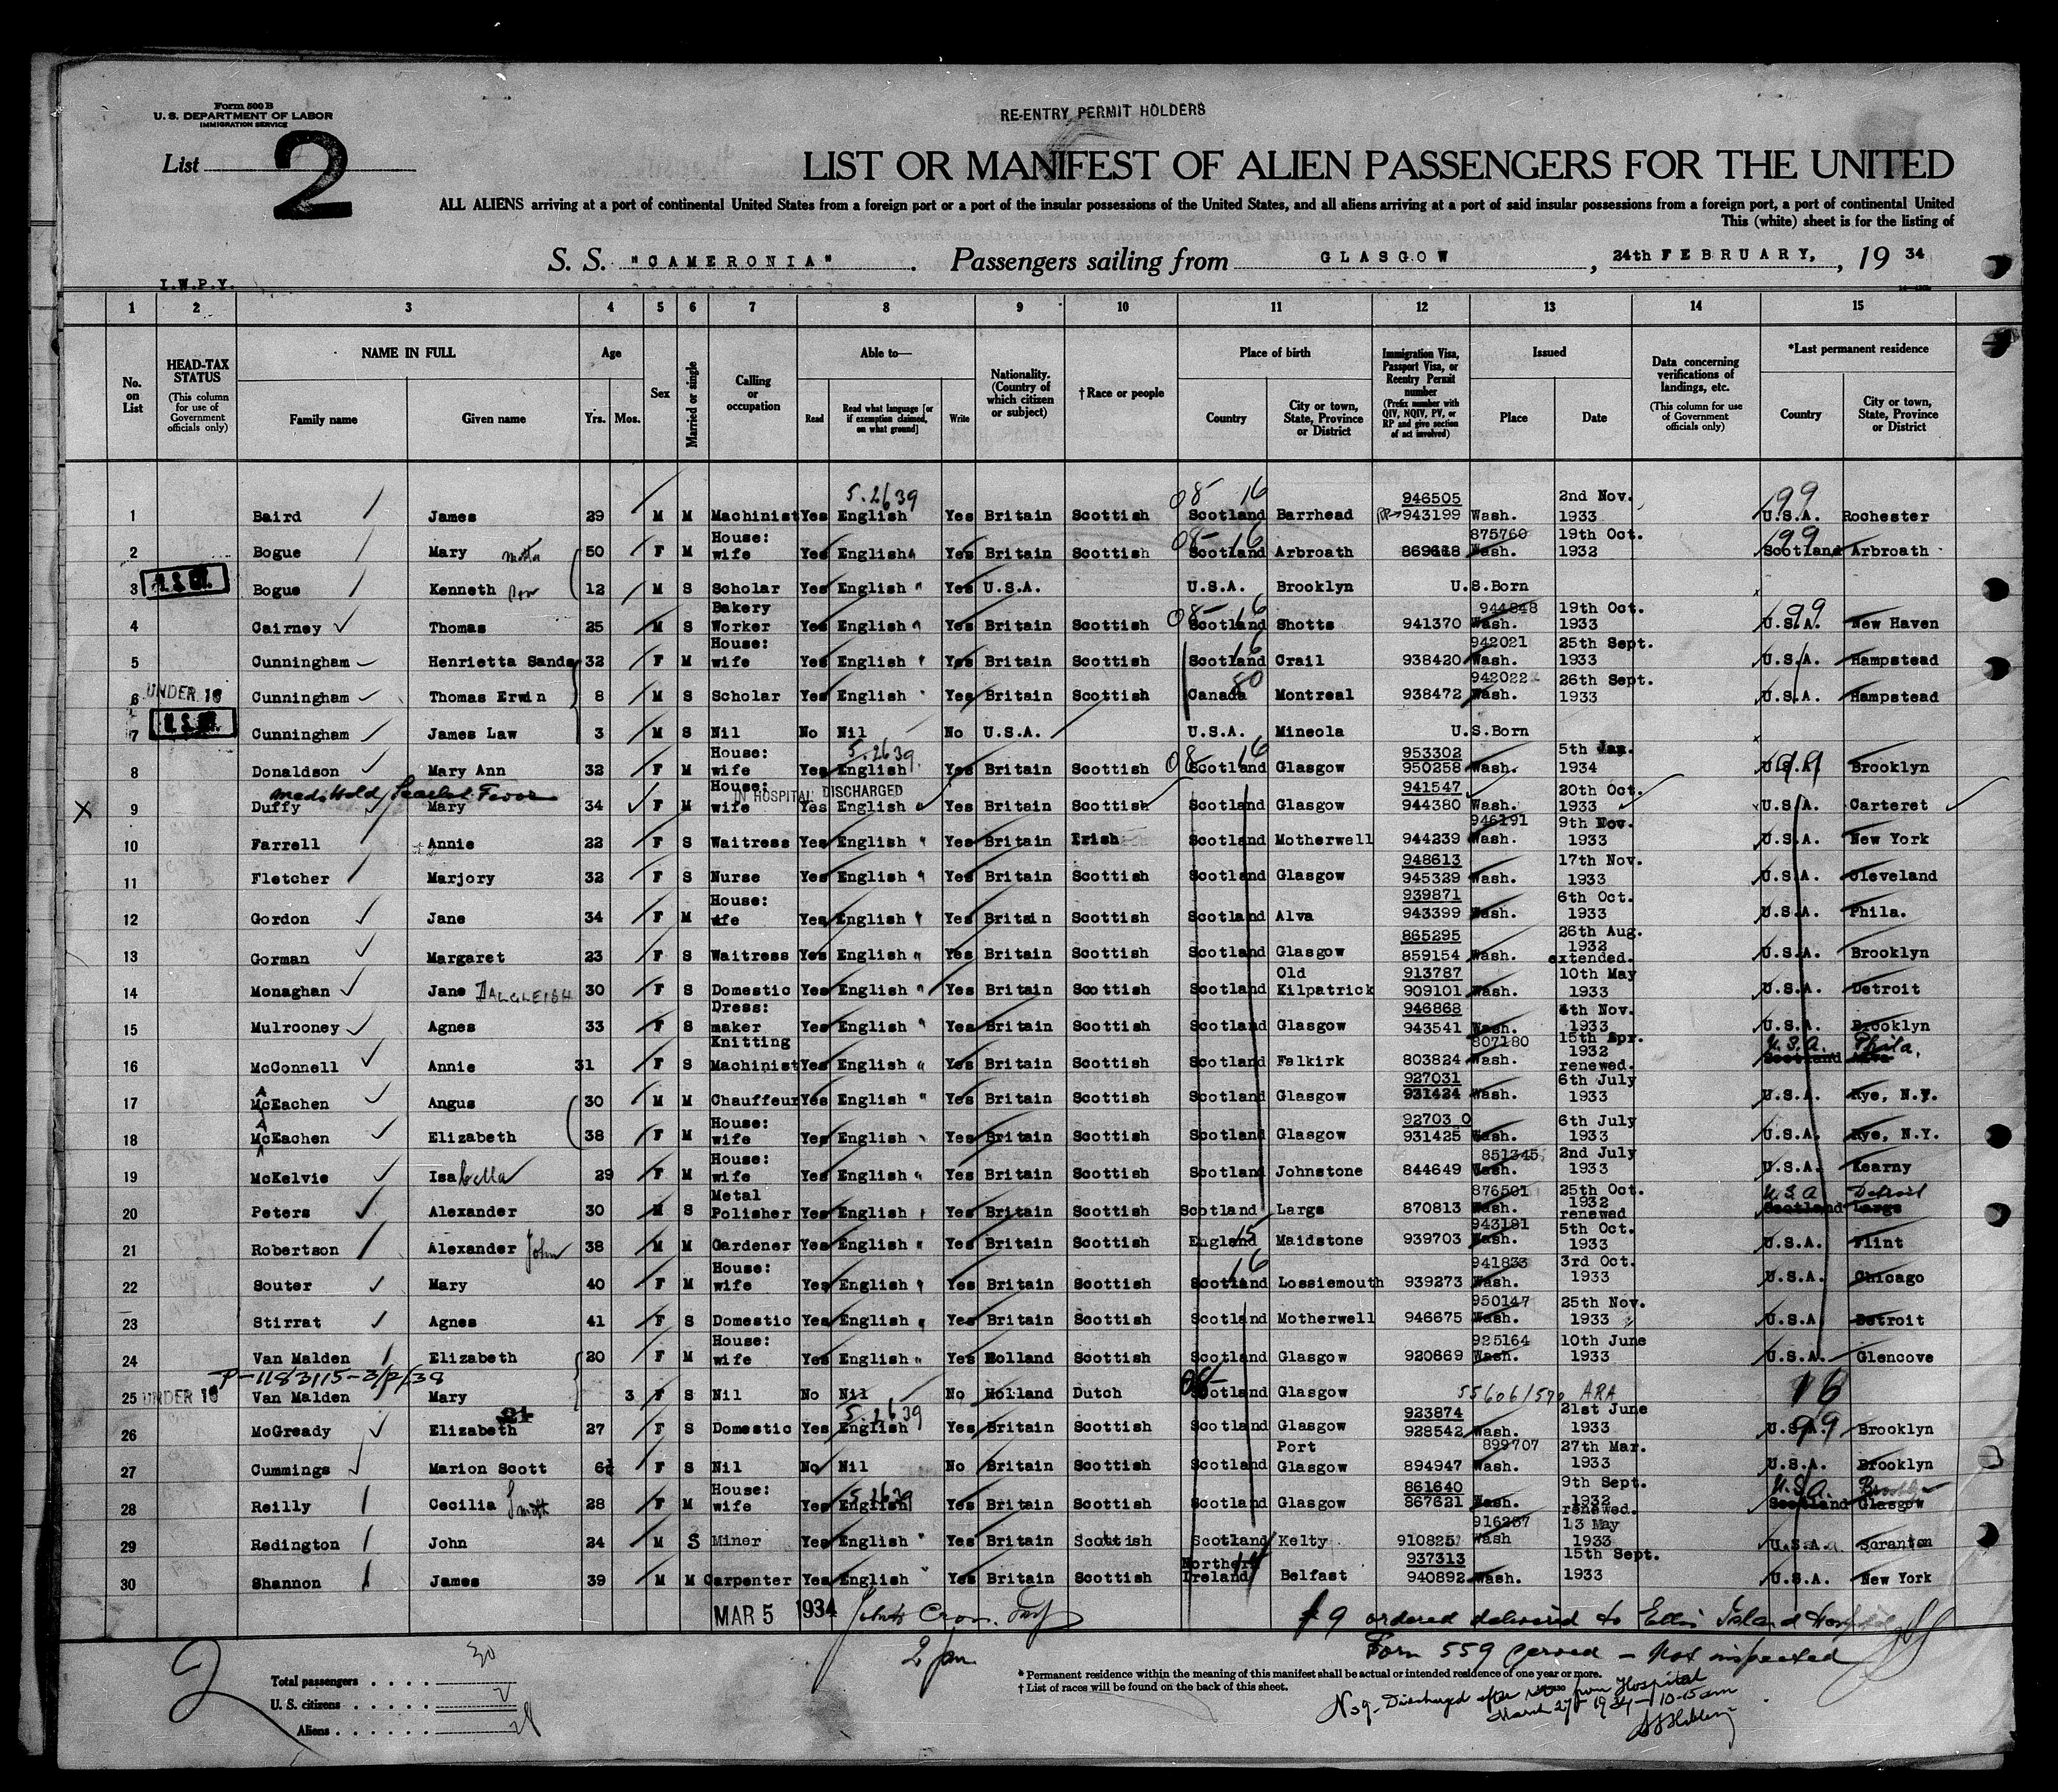 Form 500 B
U. S. DEPARTMENT OF LABOR
IMMIGRATION SERVICE
RE-ENTRY PERMIT HOLDERS
List 2
LIST OR MANIFEST OF ALIEN PASSENGERS FOR THE UNITED
ALL ALIENS arriving at a port of continental United States from a foreign port or a port of the insular possessions of the United States, and all aliens arriving at a port of said insular possessions from a foreign port, a port of continental United
This (white) sheet is for the listing of
S. S. "CAMERONIA". Passengers sailing from GLASGOW, 24th FEBRUARY, 19 34
I.W.P.Y.
1 2 3 4 5 6 7 8 9 10 11 12 13 14 15
No. on List
HEAD-TAX STATUS (This column for use of Government officials only)
NAME IN FULL Family name Given name
Age Yrs. Mos.
Sex
Married or single
Calling or occupation
Able to— Read Read what language [or if exemption claimed, on what ground] Write
Nationality. (Country of which citizen or subject)
†Race or people
Place of birth Country City or town, State, Province or District
Immigration Visa, Passport Visa, or Reentry Permit number (Prefix number with QIV, NQIV, PV, or RP and give section of act involved)
Issued Place Date
Data concerning verifications of landings, etc. (This column for use of Government officials only)
*Last permanent residence Country City or town, State, Province or District
5.2639 08- 16 946505 2nd Nov. 199
1 Baird James 29 M M Machinist Yes English Yes Britain Scottish Scotland Barrhead 943199 Wash. 1933 U.S.A. Rochester
House: 08- 16 875760 19th Oct. 199
2 Bogue Mary 50 F M wife Yes English Yes Britain Scottish Scotland Arbroath 869618 Wash. 1932 Scotland Arbroath
3 Bogue Kenneth 12 M S Scholar Yes English " Yes U.S.A. U.S.A. Brooklyn U.S.Born
Bakery 08- 16 944848 19th Oct. 199
4 Cairney Thomas 25 M S Worker Yes English " Yes Britain Scottish Scotland Shotts 941370 Wash. 1933 U.S.A. New Haven
House: 16 942021 25th Sept.
5 Cunningham Henrietta Sands 32 F M wife Yes English " Yes Britain Scottish Scotland Crail 938420 Wash. 1933 U.S.A. Hampstead
UNDER 16 80 942022 26th Sept.
6 Cunningham Thomas Erwin 8 M S Scholar Yes English " Yes Britain Scottish Canada Montreal 938472 Wash. 1933 U.S.A. Hampstead
7 Cunningham James Law 3 M S Nil No Nil No U.S.A. U.S.A. Mineola U.S.Born
House: 5.2639 08- 16 953302 5th Jan.
8 Donaldson Mary Ann 32 F M wife Yes English Yes Britain Scottish Scotland Glasgow 950258 Wash. 1934 U.S.A. 99 Brooklyn
Med. Hold Scarlet Fever House: IN HOSPITAL DISCHARGED 941547 20th Oct.
X 9 Duffy Mary 34 F M wife Yes English " Yes Britain Scottish Scotland Glasgow 944380 Wash. 1933 U.S.A. Carteret
946191 9th Nov.
10 Farrell Annie 22 F S Waitress Yes English " Yes Britain Irish Scotland Motherwell 944239 Wash. 1933 U.S.A. New York
948613 17th Nov.
11 Fletcher Marjory 32 F S Nurse Yes English " Yes Britain Scottish Scotland Glasgow 945329 Wash. 1933 U.S.A. Cleveland
House: 939871 6th Oct.
12 Gordon Jane 34 F M wfe Yes English " Yes Britain Scottish Scotland Alva 943399 Wash. 1933 U.S.A. Phila.
865295 26th Aug. 1932
13 Gorman Margaret 23 F S Waitress Yes English " Yes Britain Scottish Scotland Glasgow 859154 Wash. extended. U.S.A. Brooklyn
Old 913787 10th May
14 Monaghan Jane DALGLEISH 30 F S Domestic Yes English " Yes Britain Scottish Scotland Kilpatrick 909101 Wash. 1933 U.S.A. Detroit
Dress: 946868 4th Nov.
15 Mulrooney Agnes 33 F S maker Yes English " Yes Britain Scottish Scotland Glasgow 943541 Wash. 1933 U.S.A. Brooklyn
Knitting 807180 15th Apr. 1932 U.S.A. Phila.
16 McConnell Annie 31 F S Machinist Yes English " Yes Britain Scottish Scotland Falkirk 803824 Wash. renewed. Scotland Alva
A 927031 6th July
17 McEachen Angus 30 M M Chauffeur Yes English " Yes Britain Scottish Scotland Glasgow 931424 Wash. 1933 U.S.A. Rye, N.Y.
A House: 92703 0 6th July
18 McEachen Elizabeth 38 F M wife Yes English " Yes Britain Scottish Scotland Glasgow 931425 Wash. 1933 U.S.A. Rye, N.Y.
House: 851345 2nd July
19 McKelvie Isabella 29 F M wife Yes English " Yes Britain Scottish Scotland Johnstone 844649 Wash. 1933 U.S.A. Kearny
Metal 876501 25th Oct. 1932 U.S.A Detroit
20 Peters Alexander 30 M S Polisher Yes English " Yes Britain Scottish Scotland Largs 870813 Wash. renewed Scotland Largs
15 943181 5th Oct.
21 Robertson Alexander John 38 M M Gardener Yes English " Yes Britain Scottish England Maidstone 939703 Wash. 1933 U.S.A. Flint
House: 16 941833 3rd Oct.
22 Souter Mary 40 F M wife Yes English " Yes Britain Scottish Scotland Lossiemouth 939273 Wash. 1933 U.S.A. Chicago
950147 25th Nov.
23 Stirrat Agnes 41 F S Domestic Yes English " Yes Britain Scottish Scotland Motherwell 946675 Wash. 1933 U.S.A Detroit
House: 925164 10th June
24 Van Malden Elizabeth 20 F M wife Yes English " Yes Holland Scottish Scotland Glasgow 920669 Wash. 1933 U.S.A. Glencove
P-1183115-3/2/38
25 UNDER 16 Van Malden Mary 3 F S Nil No Nil No Holland Dutch Scotland Glasgow 55606/570 ARA 16
21 5.2639 923874 21st June
26 McGready Elizabeth 27 F S Domestic Yes English Yes Britain Scottish Scotland Glasgow 928542 Wash. 1933 U.S.A. 99 Brooklyn
Port 899707 27th Mar.
27 Cummings Marion Scott 6½ F S Nil No Nil No Britain Scottish Scotland Glasgow 894947 Wash. 1933 U.S.A. Brooklyn
House: 5.2639 861640 9th Sept. 1932 U.S.A. Brooklyn
28 Reilly Cecilia Smith 28 F M wife Yes English Yes Britain Scottish Scotland Glasgow 867621 Wash. renewed. Scotland Glasgow
916257 13 May
29 Redington John 24 M S Miner Yes English " Yes Britain Scottish Scotland Kelty 910825 Wash 1933 U.S.A. Scranton
Northern 14 937313 15th Sept.
30 Shannon James 39 M M Carpenter Yes English " Yes Britain Scottish Ireland Belfast 940892 Wash. 1933 U.S.A. New York
MAR 5 1934
#9 ordered delivered to Ellis Island Hospital
Form 559 served - Not inspected
2
Total passengers 30
U. S. citizens 2
Aliens 28
* Permanent residence within the meaning of this manifest shall be actual or intended residence of one year or more.
† List of races will be found on the back of this sheet.
No 9 - Discharged after from Hospital
March 27 1934 - 10-15 am